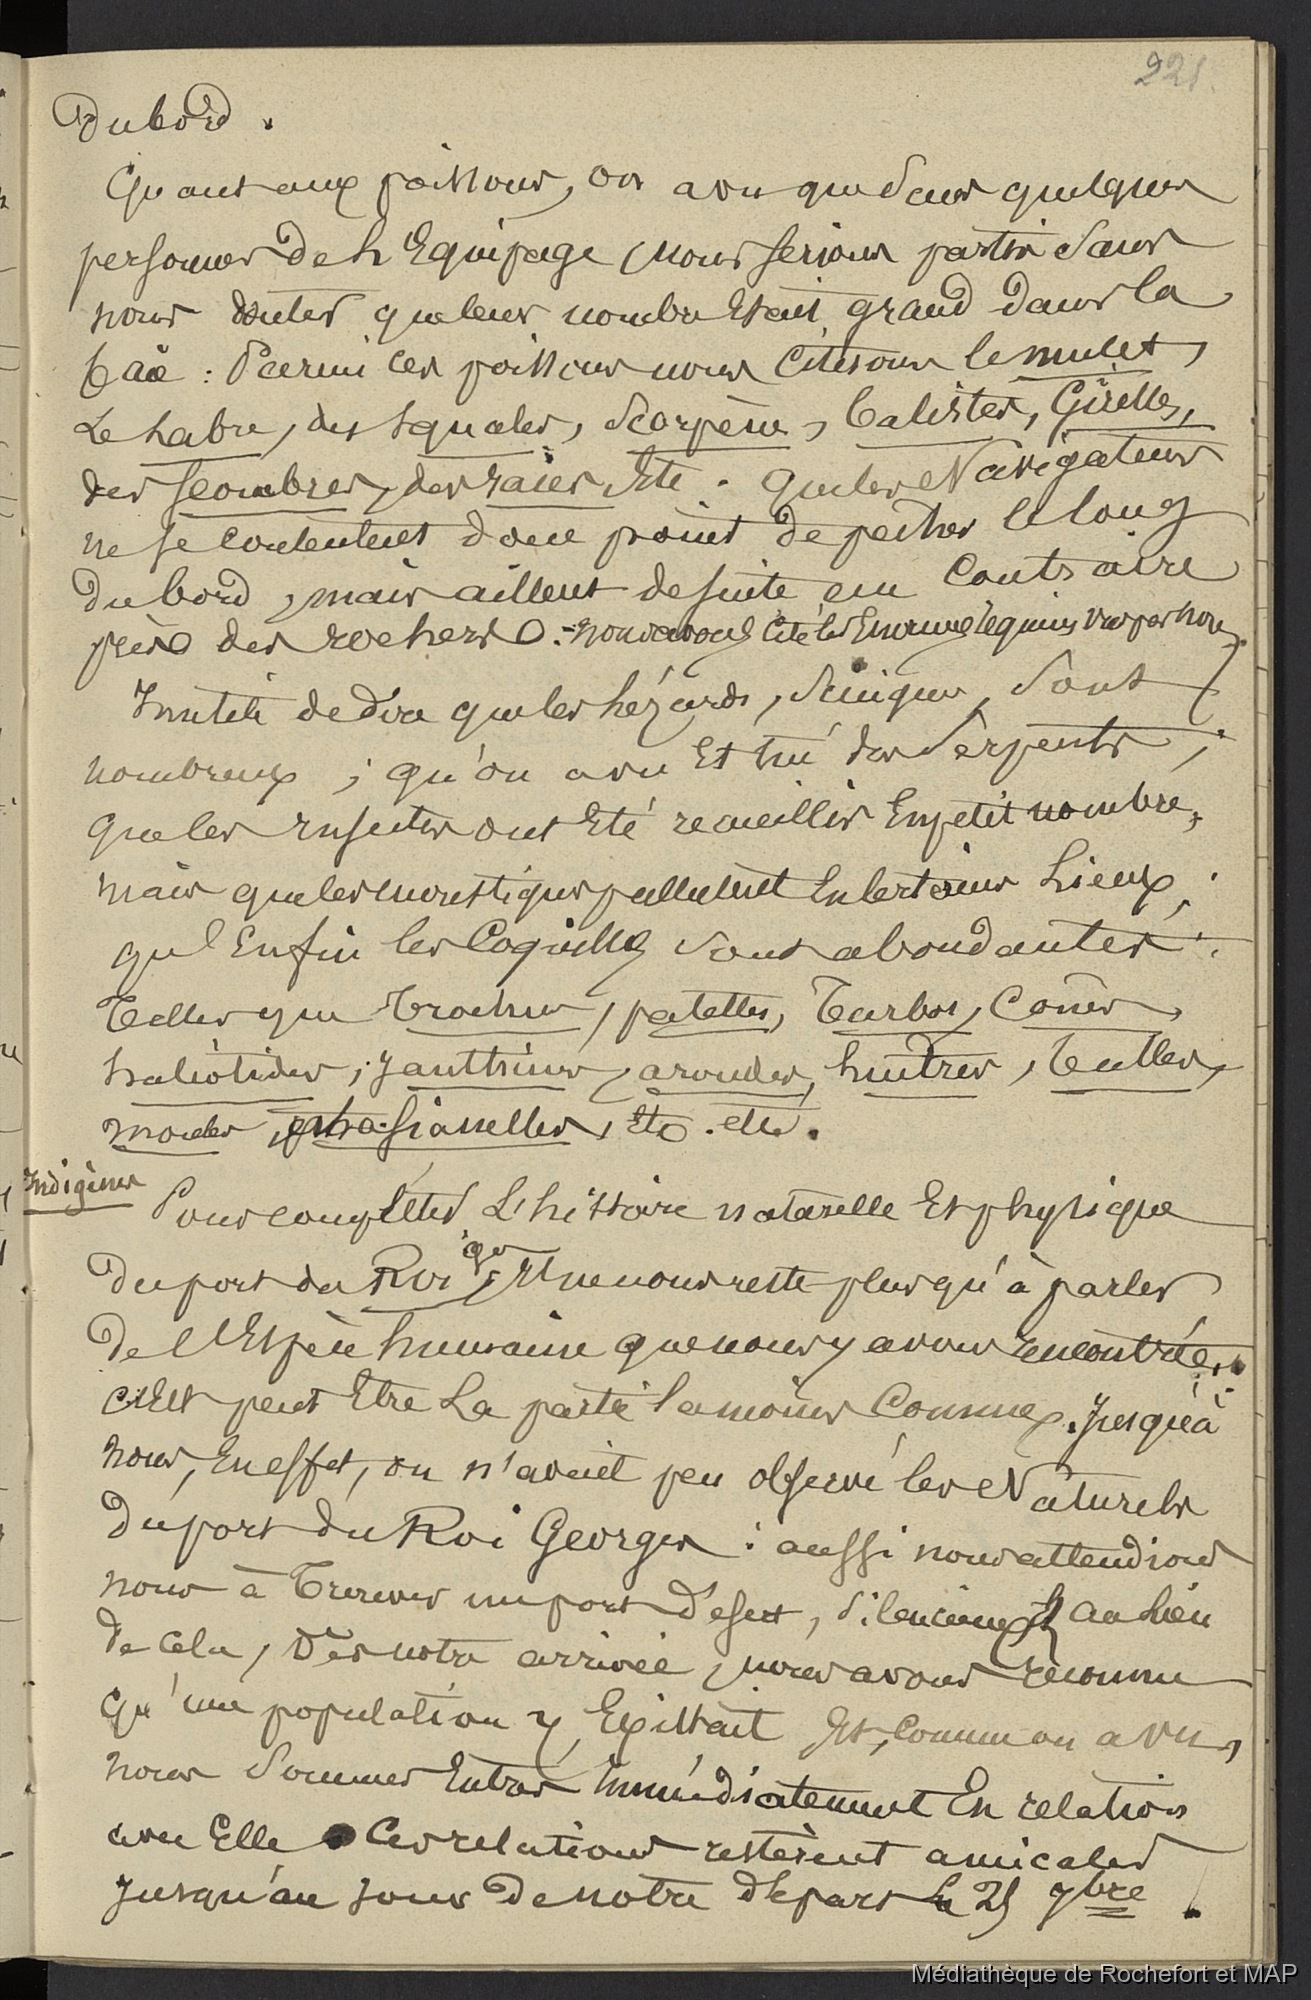 221.
Du bord.
Quant aux poissons, on a vu que sans quelques
personnes de l'Equipage, nous serions partis sans
nous douter que leur nombre Etait grand dans la
baie : Parmi ces poissons nous citerons le mulet,
Le Labre, des squales, Scorpène, balistes, Girelles,
des scombres, des raies, Etc. Que les Navigateurs
ne se contentent donc point de pecher le long
du bord, mais aillent de suite au Contraire
près des rochers. - nous avons cité les Enormes requins vus par nous
Inutile de dire que les Lézards, Scinques, Sont
nombreux ; qu'on a vu Et tué des Serpents ;
Que les Insectes ont Eté recueillis En petit nombre,
mais que les moustiques pullulent En certains Lieux ;
qu'Enfin les Coquilles sont abondantes :
Telles que trochus, patelles, Turbos, Cones,
haliotides, Janthines, arondes, huitres, Tulles,
moules, phasianelles, Etc. etc.
Indigènes
Pour completer L'histoire naturelle Et physique
du port du Roi ge, il ne nous reste plus qu'à parler
de l'Espèce humaine que nous y avons rencontrée ;
c'Est peut Etre La partie la moins Connue. Jusqu'à
nous, En effet, on n'avait peu observé les Naturels
du port du Roi Georges : aussi nous attendions
nous à Trouver un port désert, silencieux Au Lieu
de cela, Dès notre arrivée, nous avons reconnu
qu'une population y Existait Et, Comme on a vu,
nous Sommes Entrés Immédiatement En relation
avec Elle Ces relations restèrent amicales
Jusqu'au jour De notre départ le 25 9bre.
Médiathèque de Rochefort et MAP